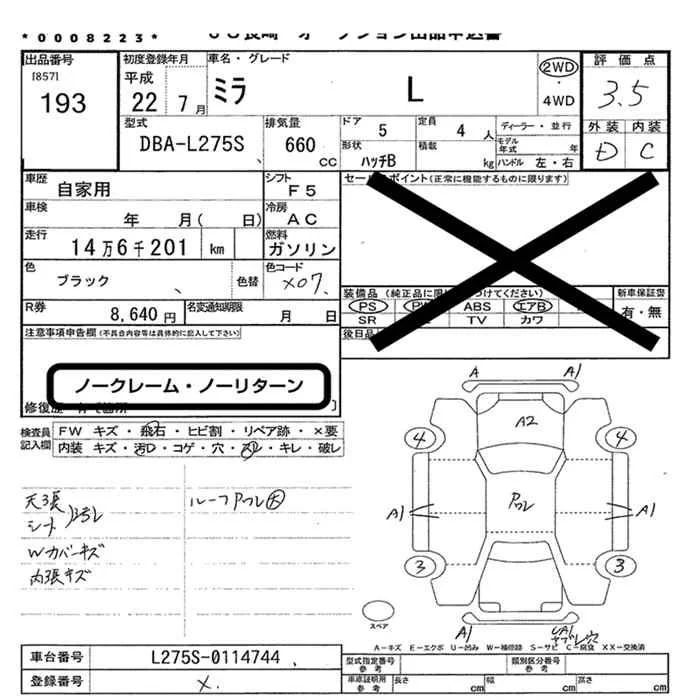 *0008223*
出品番号
[857]
193
初度登録年月
平成
22 7月
車名・グレード
ミラ L
2WD
・
4WD
評価点
3.5
外装 内装
D C
型式
DBA-L275S
排気量
660 CC
ドア
5
定員
4 人
ディーラー・並行
モデル年式 年
形状
ハッチB
積載
kg
ハンドル 左・右
車歴
自家用
シフト
F5
車検
年 月( 日)
冷房
AC
走行
14万6千201 km
燃料
ガソリン
色
ブラック
色替
色コード
X07
R券
8,640 円
名変通知期限
月 日
セールスポイント(正常に機能するものに限ります)
装備品
PS PW ABS エアB
SR TV カワ
新車保証書
有・無
注意事項申告欄(不具合内容等は具体的に記入して下さい)
ノークレーム・ノーリターン
検査員記入欄
FW キズ・飛石・ヒビ割・リペア跡・×要
内装 キズ・汚D・コゲ・穴・スレ・キレ・破レ
天張
シート
汚レ
Wカバーキズ
内張キズ
ルーフアワレ大
A
A1
A2
4 4
アワレ
A1 A1
3 3
スペア
A1
A-キズ E-エクボ U-凹み W-補修跡 S-サビ C-腐食 XX-交換済
車台番号
L275S-0114744
登録番号
X.
型式指定番号
参考
類別区分番号
参考
車庫証明用
参考
長さ cm
幅 cm
高さ cm